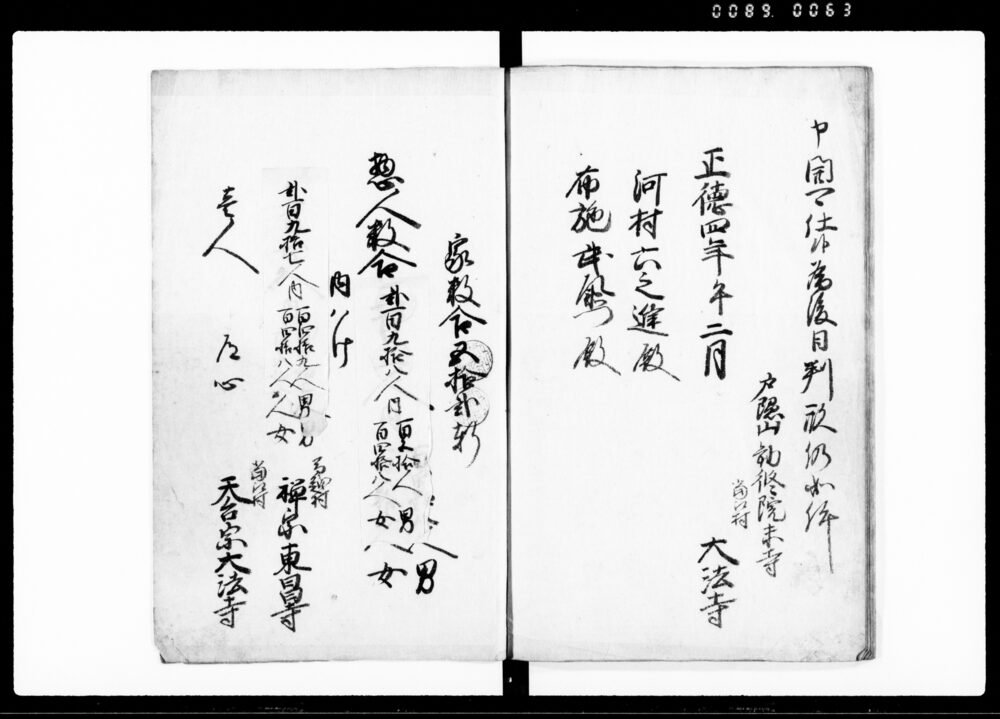 0089. 0063
申開可仕候為後日判形仍如件
戸隠山勧修院末寺
当村
大法寺
正徳四年午二月
河村六之進殿
布施武兵衛殿
家数合五拾弐軒
惣人数合弐百九拾八人内
百五拾人男
百四拾八人女
人男
人女
内わけ
弐百九拾七人内
百四拾九人男
百四拾八人女
禅宗東昌寺
壱人
道心
当村
天台宗大法寺